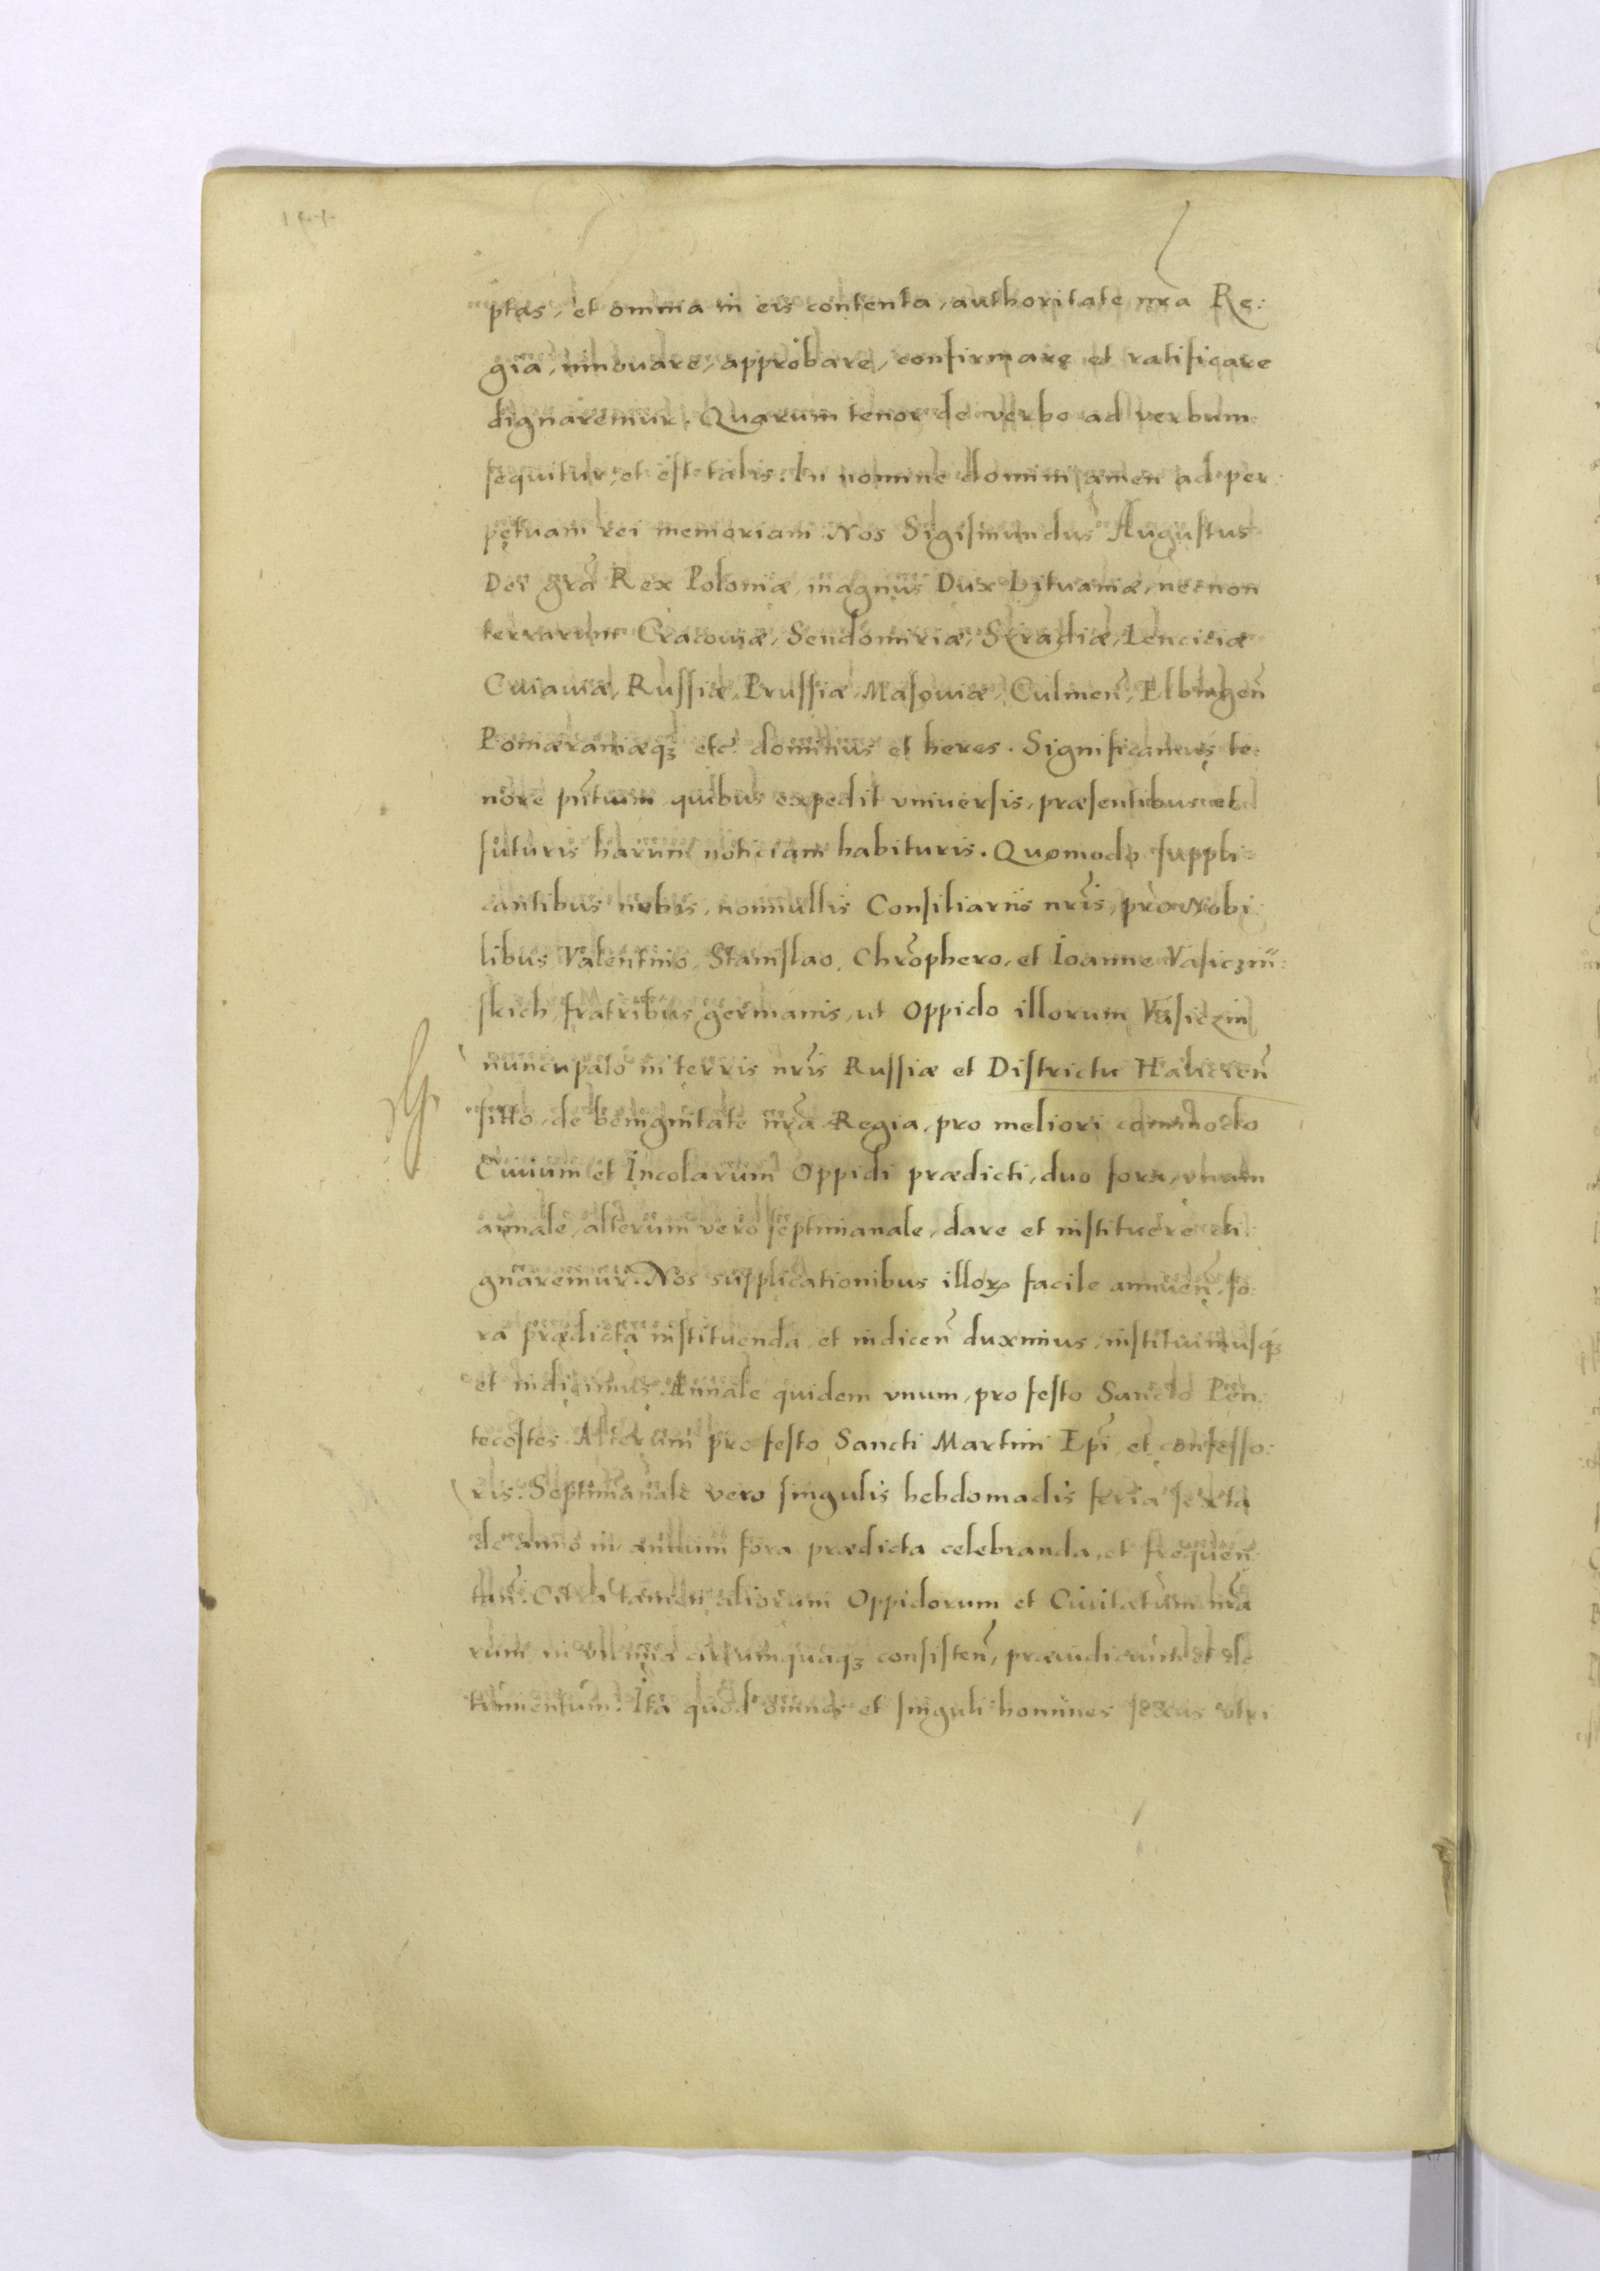 ptas, et omnia in eis contenta, authoritate nrã Re:
gia, innouare, approbare, confirmare et ratificare
dignaremur. Quarum tenor de verbo ad verbum
sequitur, et est talis. In nomine domini amen ad per
petuam rei memoriam Nos Sigismundus Augustus
Dei grã Rex Poloniæ, magnus Dux Lituaniæ, necnon
terrarum Cracouiæ, Sendomiriæ, Siradiæ, Lenciciæ
Cuiauiæ, Russiæ, Prussiæ, Masouiæ, Culmeñ, Elbingeñ
Pomæraniæq3 etc̃ dominus et heres. Significamus te:
nore pñtium quibus expedit vniuersis, præsentibus et
futuris harum noticiam habituris. Quomodo suppli:
cantibus nobis, nonnullis Consiliariis nr̃is, pro Nobi
libus Valentino, Stanislao, Chr̃ophero, et Ioanne Vasiczin:
skich, fratribus germanis, ut Oppido illorum Vasiczin
nuncupato in terris nr̃is Russiæ et Districtu Halicieñ
sitto, de benignitate nrã Regia, pro meliori commodo
Ciuium et Incolarum Oppidi prædicti, duo fora, vnum
annale, alterum vero septimanale, dare et instituere di:
gnaremur. Nos supplicationibus illoꝝ facile annueñ, fo:
ra prædicta instituenda, et indiceñ duximus, instituimusq3
et indicimus. Annale quidem vnum, pro festo Sancto Pen:
tecostes. Alterum pro festo Sancti Martini Ep̃i, et confesso:
ris. Septimanale vero singulis hebdomadis feria sexta
de anno in annum fora prædicta celebranda, et frequen
tañ. Citra tamen aliorum Oppidorum et Ciuitatum nrã
rum in vicinia circumquaq3 consisteñ, præiudicium et de
trimentum. Ita quod omnes et singuli homines sexus vtri